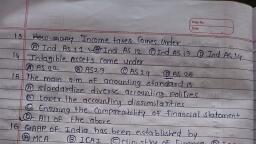 13 How many Income taxes comes under
Ⓐ Ind As 11 Ⓑ Ind As 12 Ⓒ Ind As 13 Ⓓ Ind As 14
14 Intagible assets come under
Ⓐ AS 22 Ⓑ AS 23 Ⓒ AS 24 Ⓓ AS 26
15 The main aim of accounting standard is
Ⓐ standardize diverse accounting policies
Ⓑ Lower the accounting dissimilarities
Ⓒ Ensuring the comparability of financial statement
Ⓓ All of the above
16 GAAP of India has been established by
Ⓐ MCA Ⓑ ICAI Ⓒ Ministry of Finance